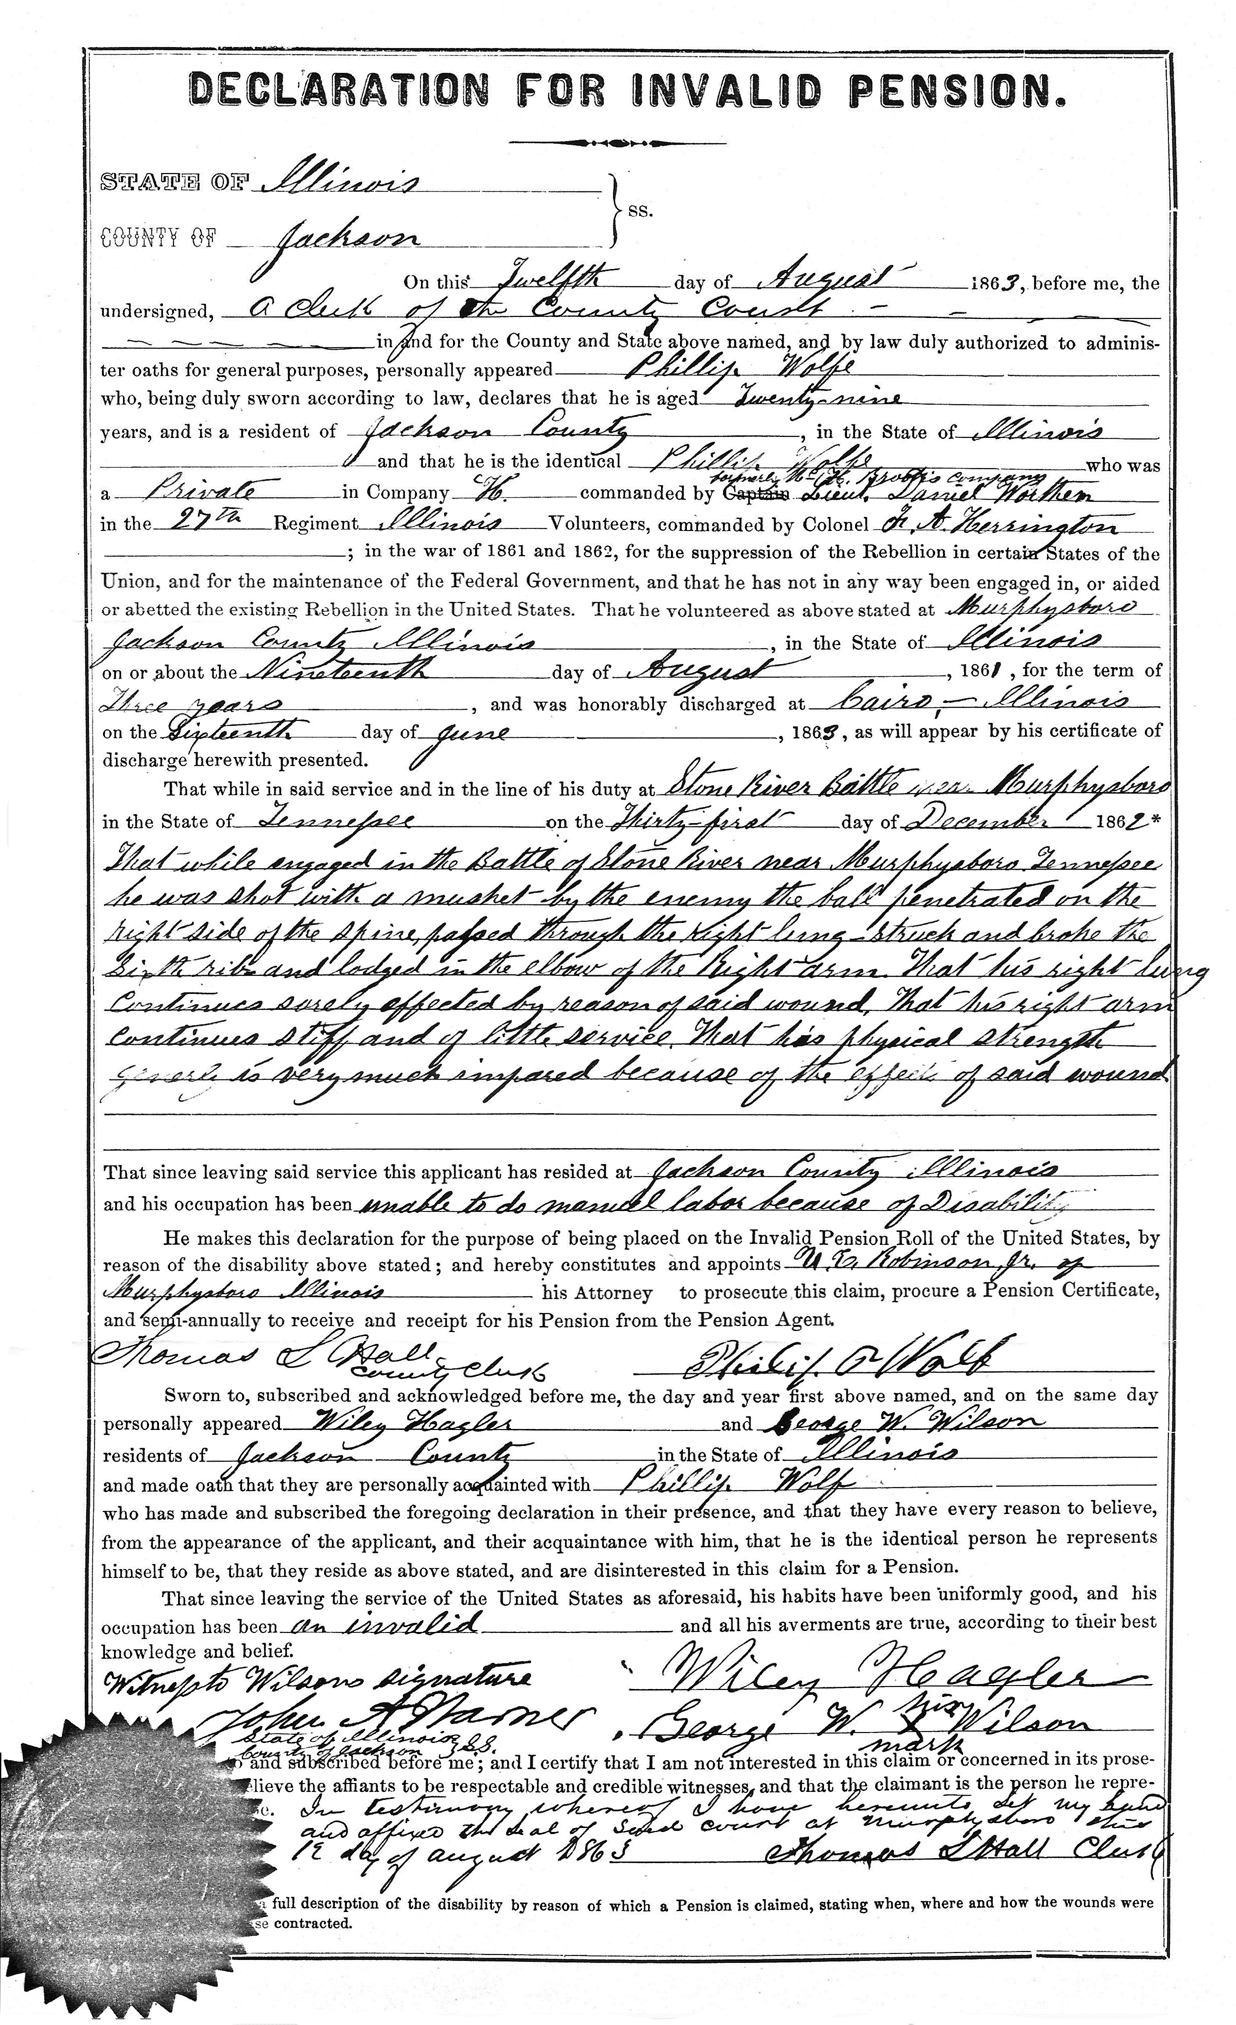 DECLARATION FOR INVALID PENSION.
STATE OF Illinois
ss.
COUNTY OF Jackson
On this Twelfth day of August 1863, before me, the
undersigned, A Clerk of the County Court
in and for the County and State above named, and by law duly authorized to adminis-
ter oaths for general purposes, personally appeared Phillip Wolfe
who, being duly sworn according to law, declares that he is aged Twenty-nine
years, and is a resident of Jackson County, in the State of Illinois
and that he is the identical Phillip Wolfe who was
formerly Brooks company
a Private in Company "H. commanded by Captain Lieut. Daniel Worthen
in the 27th Regiment Illinois Volunteers, commanded by Colonel F. A. Herrington
; in the war of 1861 and 1862, for the suppression of the Rebellion in certain States of the
Union, and for the maintenance of the Federal Government, and that he has not in any way been engaged in, or aided
or abetted the existing Rebellion in the United States. That he volunteered as above stated at Murphysboro
Jackson County Illinois, in the State of Illinois
on or about the Nineteenth day of August, 1861, for the term of
Three years, and was honorably discharged at Cairo, - Illinois
on the Sixteenth day of June, 1863, as will appear by his certificate of
discharge herewith presented.
That while in said service and in the line of his duty at Stone River Battle near Murphysboro
in the State of Tennessee on the Thirty-first day of December 1862*
That while engaged in the Battle of Stone River near Murphysboro Tennessee
he was shot with a musket by the enemy the ball penetrated on the
right side of the spine, passed through the right lung - struck and broke the
Sixth rib and lodged in the elbow of the Right arm. That his right lung
Continues sorely effected by reason of said wound, That his right arm
continues stiff and of little service. That his physical strength
generly is very much impared because of the effect of said wound
That since leaving said service this applicant has resided at Jackson County Illinois
and his occupation has been unable to do manuel labor because of Disability
He makes this declaration for the purpose of being placed on the Invalid Pension Roll of the United States, by
reason of the disability above stated; and hereby constitutes and appoints Robinson Jr. of
Murphysboro Illinois his Attorney to prosecute this claim, procure a Pension Certificate,
and semi-annually to receive and receipt for his Pension from the Pension Agent.
Thomas L Hall
County Clerk Philip Wolf
Sworn to, subscribed and acknowledged before me, the day and year first above named, and on the same day
personally appeared Wiley Hagler and George W. Wilson
residents of Jackson County in the State of Illinois
and made oath that they are personally acquainted with Phillip Wolf
who has made and subscribed the foregoing declaration in their presence, and that they have every reason to believe,
from the appearance of the applicant, and their acquaintance with him, that he is the identical person he represents
himself to be, that they reside as above stated, and are disinterested in this claim for a Pension.
That since leaving the service of the United States as aforesaid, his habits have been uniformly good, and his
occupation has been an invalid and all his averments are true, according to their best
knowledge and belief.
Witness to Wilsons signature Wiley Hagler
his
John A Warner George W. X Wilson
mark
State of Illinois
County of Jackson SS.
and subscribed before me; and I certify that I am not interested in this claim or concerned in its prose-
lieve the affiants to be respectable and credible witnesses, and that the claimant is the person he repre-
In testimony whereof I have hereunto set my hand
and affixed the seal of Said court at Murphysboro this
12 day of august 1863 Thomas L Hall Clerk
a full description of the disability by reason of which a Pension is claimed, stating when, where and how the wounds were
se contracted.